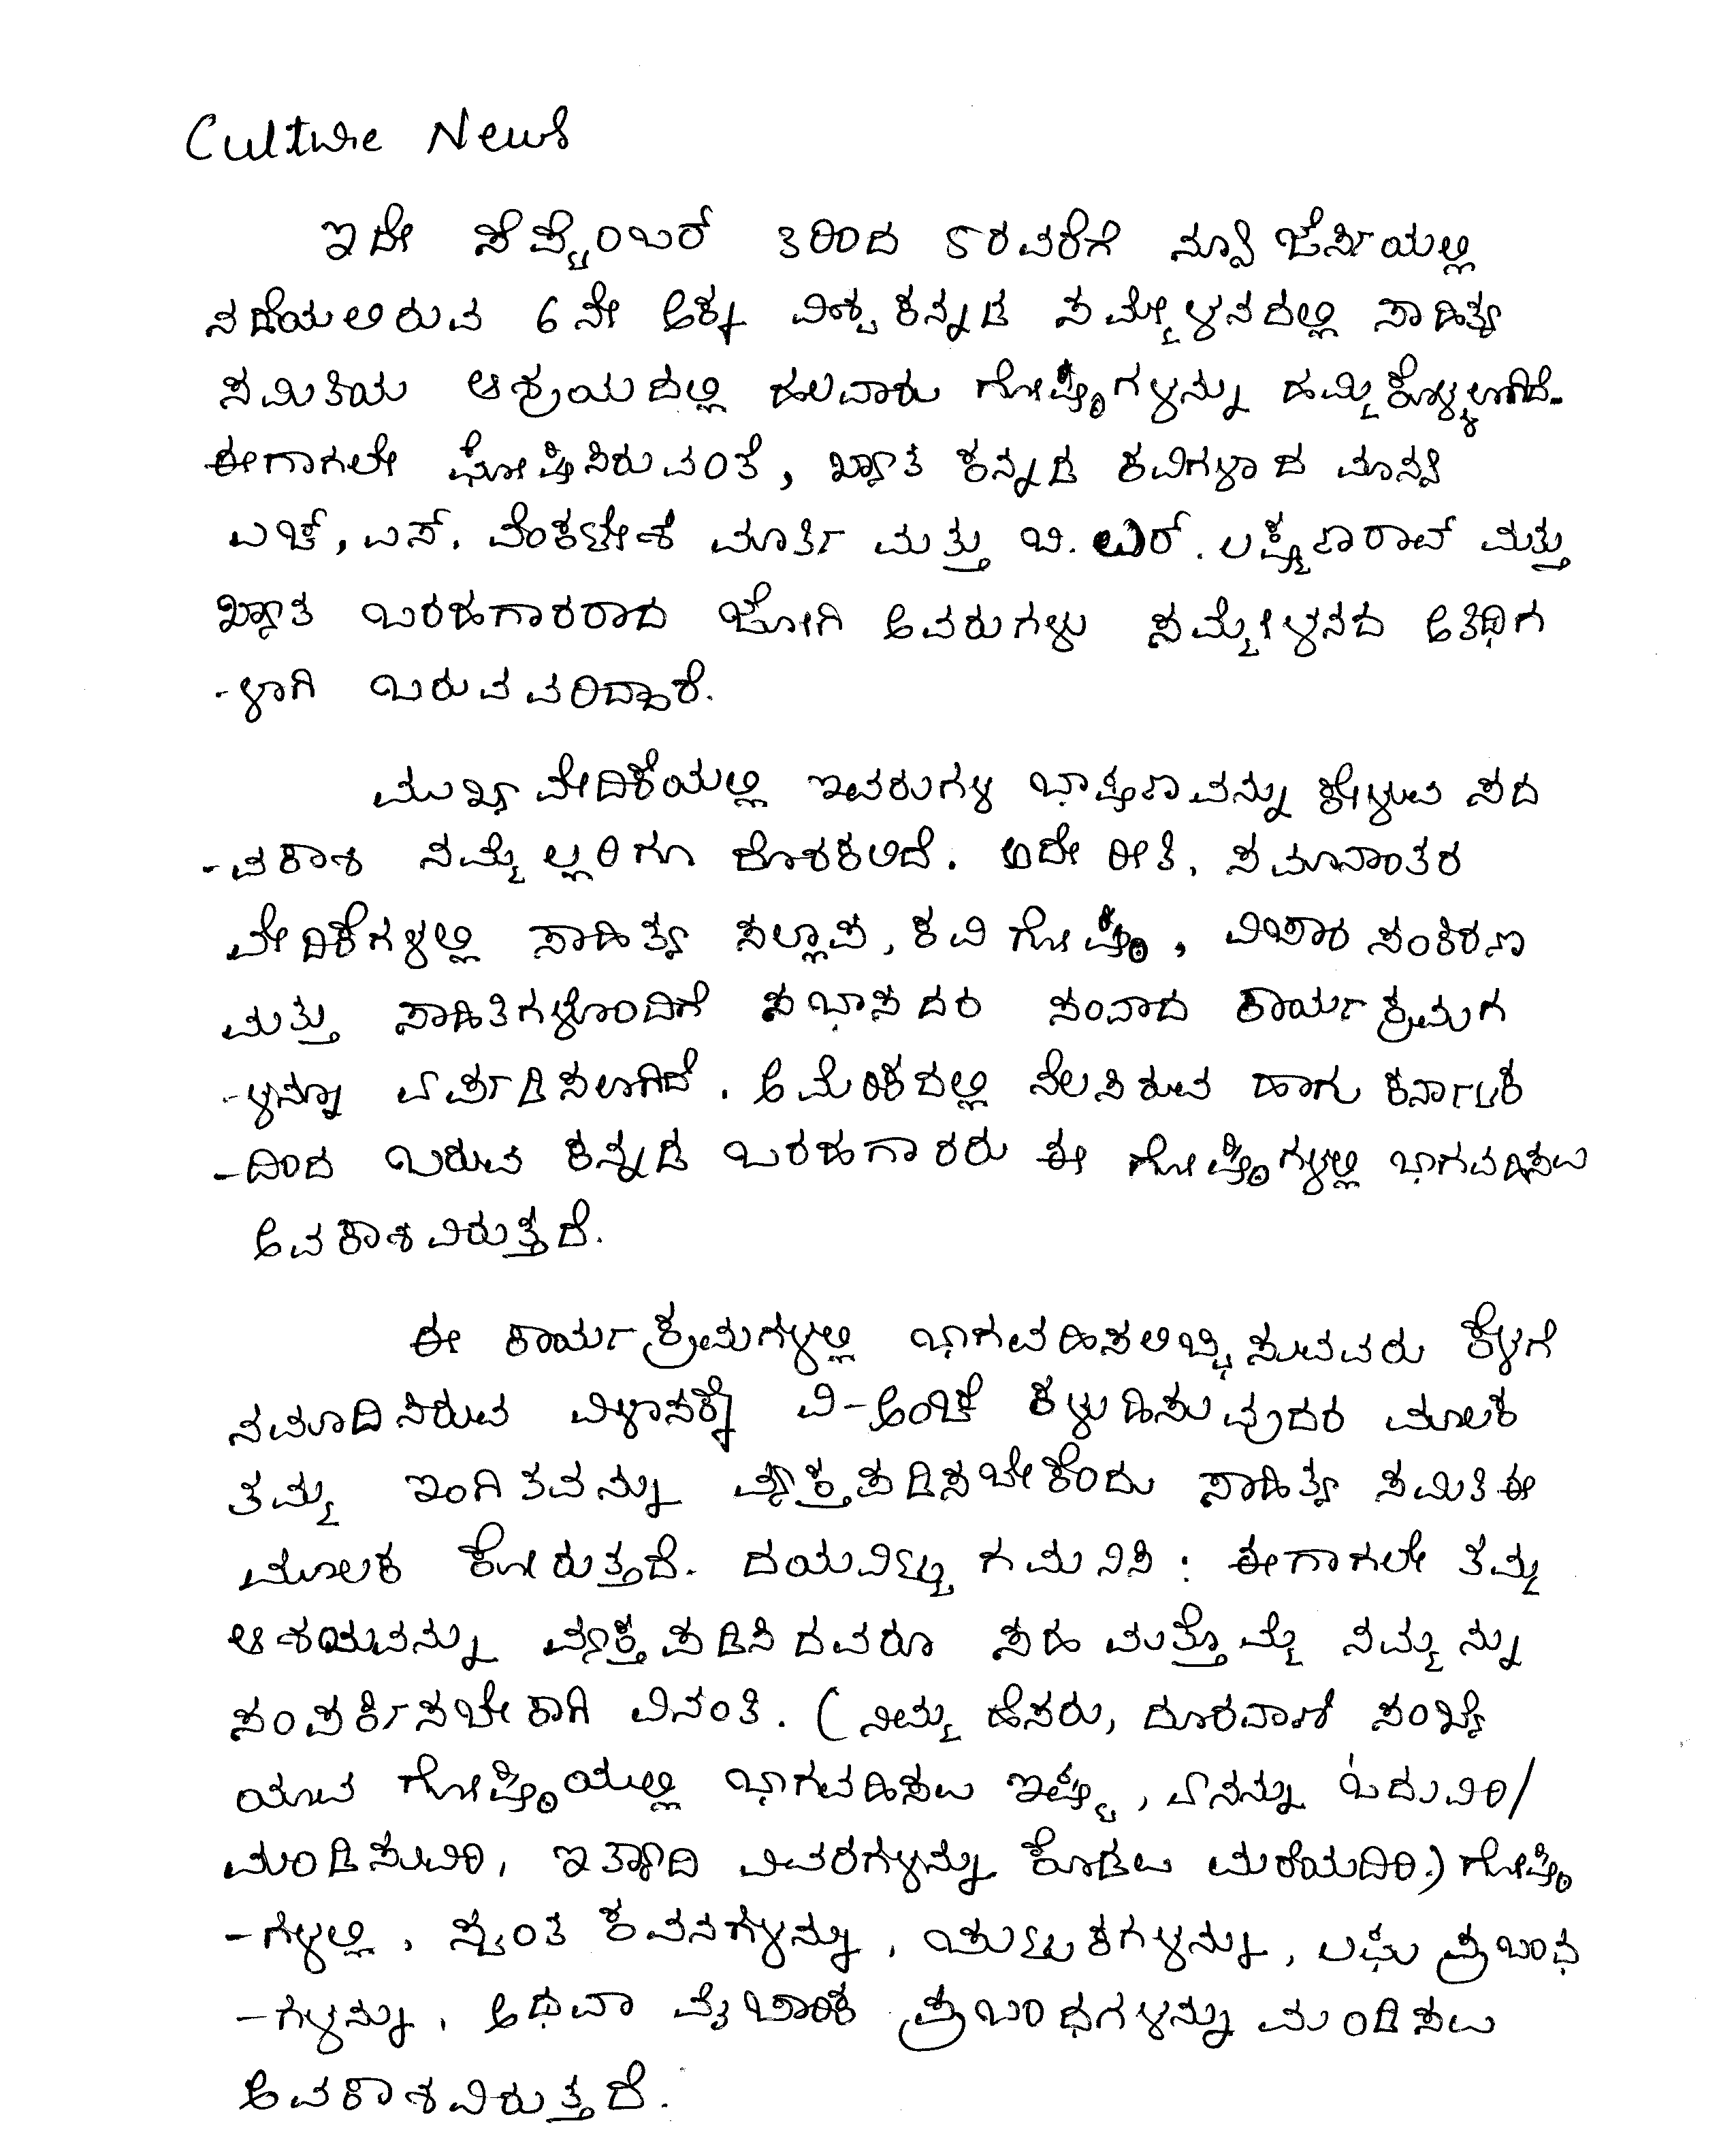 Culture News
ಇದೇ ಸೆಪ್ಟೆಂಬರ್ 3ರಿಂದ 5ರವರೆಗೆ ನ್ಯೂ ಜೆರ್ಸಿಯಲ್ಲಿ
ನಡೆಯಲಿರುವ 6ನೇ ಅಕ್ಕ ವಿಶ್ವ ಕನ್ನಡ ಸಮ್ಮೇಳನದಲ್ಲಿ ಸಾಹಿತ್ಯ
ಸಮಿತಿಯ ಆಶ್ರಯದಲ್ಲಿ ಹಲವಾರು ಗೋಷ್ಠಿಗಳನ್ನು ಹಮ್ಮಿಕೊಳ್ಳಲಾಗಿದೆ.
ಈಗಾಗಲೇ ಘೋಷಿಸಿರುವಂತೆ, ಖ್ಯಾತ ಕನ್ನಡ ಕವಿಗಳಾದ ಮಾನ್ಯ
ಎಚ್, ಎಸ್. ವೆಂಕಟೇಶ ಮೂರ್ತಿ ಮತ್ತು ಬಿ. ಆರ್. ಲಕ್ಷ್ಮಣರಾವ್ ಮತ್ತು
ಖ್ಯಾತ ಬರಹಗಾರರಾದ ಜೋಗಿ ಅವರುಗಳು ಸಮ್ಮೇಳನದ ಅತಿಥಿಗ
-ಳಾಗಿ ಬರುವವರಿದ್ದಾರೆ.
ಮುಖ್ಯ ವೇದಿಕೆಯಲ್ಲಿ ಇವರುಗಳ ಭಾಷಣವನ್ನು ಕೇಳುವ ಸದ
-ವಕಾಶ ನಮ್ಮೆಲ್ಲರಿಗೂ ದೊರಕಲಿದೆ. ಅದೇ ರೀತಿ, ಸಮಾನಾಂತರ
ವೇದಿಕೆಗಳಲ್ಲಿ ಸಾಹಿತ್ಯ ಸಲ್ಲಾಪ, ಕವಿ ಗೋಷ್ಠಿ, ವಿಚಾರ ಸಂಕಿರಣ
ಮತ್ತು ಸಾಹಿತಿಗಳೊಂದಿಗೆ ಸಭಾಸದರ ಸಂವಾದ ಕಾರ್ಯಕ್ರಮಗ
-ಳನ್ನೂ ಏರ್ಪಡಿಸಲಾಗಿದೆ. ಅಮೆರಿಕದಲ್ಲಿ ನೆಲಸಿರುವ ಹಾಗು ಕರ್ನಾಟಕ
-ದಿಂದ ಬರುವ ಕನ್ನಡ ಬರಹಗಾರರು ಈ ಗೋಷ್ಠಿಗಳಲ್ಲಿ ಭಾಗವಹಿಸಲು
ಅವಕಾಶವಿರುತ್ತದೆ.
ಈ ಕಾರ್ಯಕ್ರಮಗಳಲ್ಲಿ ಭಾಗವಹಿಸಲಿಚ್ಛಿಸುವವರು ಕೆಳಗೆ
ನಮೂದಿಸಿರುವ ವಿಳಾಸಕ್ಕೆ ವಿ-ಅಂಚೆ ಕಳುಹಿಸುವುದರ ಮೂಲಕ
ತಮ್ಮ ಇಂಗಿತವನ್ನು ವ್ಯಕ್ತಪಡಿಸಬೇಕೆಂದು ಸಾಹಿತ್ಯ ಸಮಿತಿ ಈ
ಮೂಲಕ ಕೋರುತ್ತದೆ. ದಯವಿಟ್ಟು ಗಮನಿಸಿ: ಈಗಾಗಲೇ ತಮ್ಮ
ಆಶಯವನ್ನು ವ್ಯಕ್ತಪಡಿಸಿದವರೂ ಸಹ ಮತ್ತೊಮ್ಮೆ ನಮ್ಮನ್ನು
ಸಂಪರ್ಕಿಸಬೇಕಾಗಿ ವಿನಂತಿ. (ನಿಮ್ಮ ಹೆಸರು, ದೂರವಾಣಿ ಸಂಖ್ಯೆ
ಯಾವ ಗೋಷ್ಠಿಯಲ್ಲಿ ಭಾಗವಹಿಸಲು ಇಷ್ಟ, ಏನನ್ನು ಓದುವಿರಿ/
ಮಂಡಿಸುವಿರಿ, ಇತ್ಯಾದಿ ವಿವರಗಳನ್ನು ಕೊಡಲು ಮರೆಯದಿರಿ.) ಗೋಷ್ಠಿ
-ಗಳಲ್ಲಿ, ಸ್ವಂತ ಕವನಗಳನ್ನು, ಚುಟುಕಗಳನ್ನು, ಲಘು ಪ್ರಬಂಧ
-ಗಳನ್ನು, ಅಥವಾ ವೈಚಾರಿಕ ಪ್ರಬಂಧಗಳನ್ನು ಮಂಡಿಸಲು
ಅವಕಾಶವಿರುತ್ತದೆ.